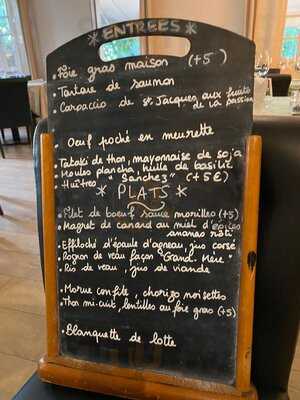 * ENTREES *
• Foie gras maison (+5)
• Tartare de saumon
• Carpaccio de St Jacques aux fruits
de la passion
• Oeuf poché en meurette
• Tataki de thon, mayonnaise de soja
• Moules plancha, huile de basilic
• Huîtres "Sanchez" (+5€)
* PLATS *
• Filet de boeuf sauce morilles (+5)
• Magret de canard au miel d'épices
ananas rôti
• Effiloché d'épaule d'agneau, jus corsé
• Rognon de veau façon "Grand-Mère"
• Ris de veau, jus de viande
• Morue confite, chorizo noisettes
• Thon mi-cuit, lentilles au foie gras (+5)
• Blanquette de lotte